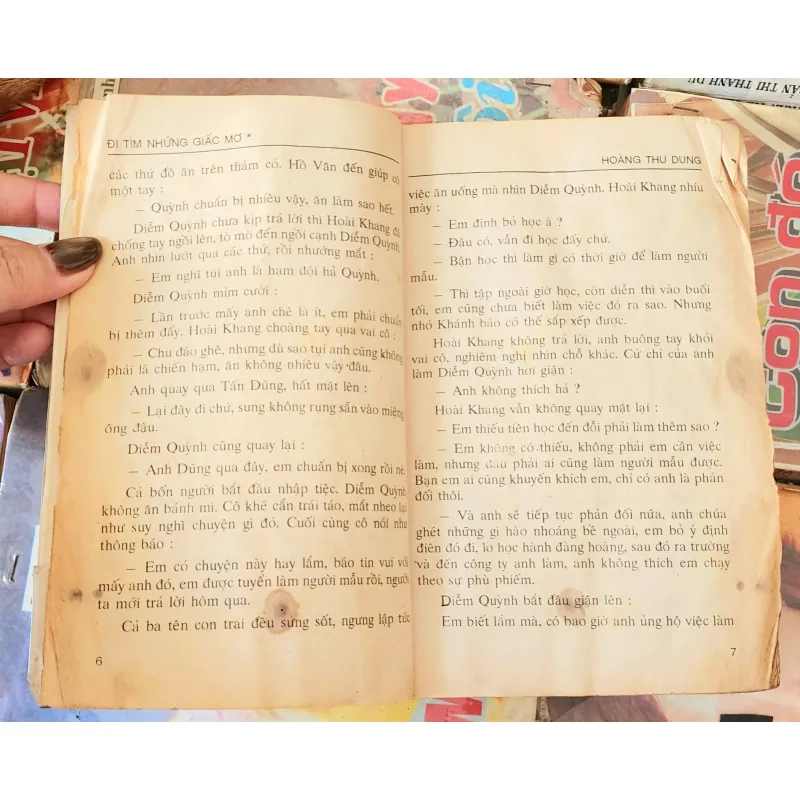 ĐI TÌM NHỮNG GIẤC MƠ *
các thứ đồ ăn trên thảm cỏ. Hồ Văn đến giúp cô
một tay :
– Quỳnh chuẩn bị nhiều vậy, ăn làm sao hết.
Diễm Quỳnh chưa kịp trả lời thì Hoài Khang đã
chống tay ngồi lên, tò mò đến ngồi cạnh Diễm Quỳnh.
Anh nhìn lướt qua các thứ, rồi nhướng mắt :
– Em nghĩ tụi anh là hạm đội hả Quỳnh.
Diễm Quỳnh mỉm cười :
– Lần trước mấy anh chê là ít, em phải chuẩn
bị thêm đấy. Hoài Khang choàng tay qua vai cô :
– Chu đáo ghê, nhưng dù sao tụi anh cũng không
phải là chiến hạm, ăn không nhiều vậy đâu.
Anh quay qua Tấn Dũng, hất mặt lên :
– Lại đây đi chứ, sung không rụng sẵn vào miệng
ông đâu.
Diễm Quỳnh cũng quay lại :
– Anh Dũng qua đây, em chuẩn bị xong rồi nè.
Cả bốn người bắt đầu nhập tiệc. Diễm Quỳnh
không ăn bánh mì. Cô khẽ cắn trái táo, mắt nheo lại
như suy nghĩ chuyện gì đó. Cuối cùng cô nói như
thông báo :
– Em có chuyện này hay lắm, báo tin vui với
mấy anh đó, em được tuyển làm người mẫu rồi, người
ta mới trả lời hôm qua.
Cả ba tên con trai đều sửng sốt, ngưng lập tức
6
HOÀNG THU DUNG
việc ăn uống mà nhìn Diễm Quỳnh. Hoài Khang nhíu
mày :
– Em định bỏ học à ?
– Đâu có, vẫn đi học đấy chứ.
– Bận học thì làm gì có thời giờ để làm người
mẫu.
– Thì tập ngoài giờ học, còn diễn thì vào buổi
tối, em cũng chưa biết làm việc đó ra sao. Nhưng
nhỏ Khánh bảo có thể sắp xếp được.
Hoài Khang không trả lời, anh buông tay khỏi
vai cô, nghiêm nghị nhìn chỗ khác. Cử chỉ của anh
làm Diễm Quỳnh hơi giận :
– Anh không thích hả ?
Hoài Khang vẫn không quay mặt lại :
– Em thiếu tiền học đến đỗi phải làm thêm sao ?
– Em không có thiếu, không phải em cần việc
làm, nhưng đâu phải ai cũng làm người mẫu được.
Bạn em ai cũng khuyến khích em, chỉ có anh là phản
đối thôi.
– Và anh sẽ tiếp tục phản đối nữa, anh chúa
ghét những gì hào nhoáng bề ngoài, em bỏ ý định
điên đó đi, lo học hành đàng hoàng, sau đó ra trường
và đến công ty anh làm, anh không thích em chạy
theo sự phù phiếm.
Diễm Quỳnh bắt đầu giận lên :
Em biết lắm mà, có bao giờ anh ủng hộ việc làm
7
con đò